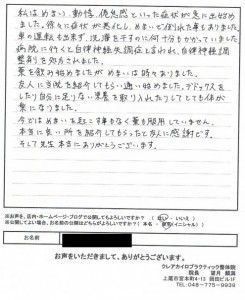 私はめまい、動悸、倦怠感といった症状が急に出始め
ました。徐々に症状が悪化し、めまいで倒れた事もありました。
車の運転も出来ず、洗濯を干すのに何十分もかかっていました。
病院に行くと自律神経失調症と言われ、自律神経調
整剤を処方されました。
薬を飲み始めましたがめまいは時々ありました。
友人に当院を紹介してもらい通い始めました。デトックスを
したり自分に足りない栄養を取り入れたりしてとても体が
楽になりました。
今ではめまいを起こす事もなく薬も服用していません。
本当に良い所を紹介してもらったと友人に感謝です。
そして先生本当にありがとうございます。
※お声を、店内・ホームページ・ブログで公開してもよろしいですか？ （ はい ・ いいえ ）
※公開してよい場合、お名前の公開はどちらがよろしいですか？（ 本名 ・ 仮名(イニシャル) ）
お名前
お声をいただきまして、ありがとうございます。
クレアカイロプラクティック整体院
院長
上尾市宮本町4-13 岡田ビル1F
TEL:048-775-9939